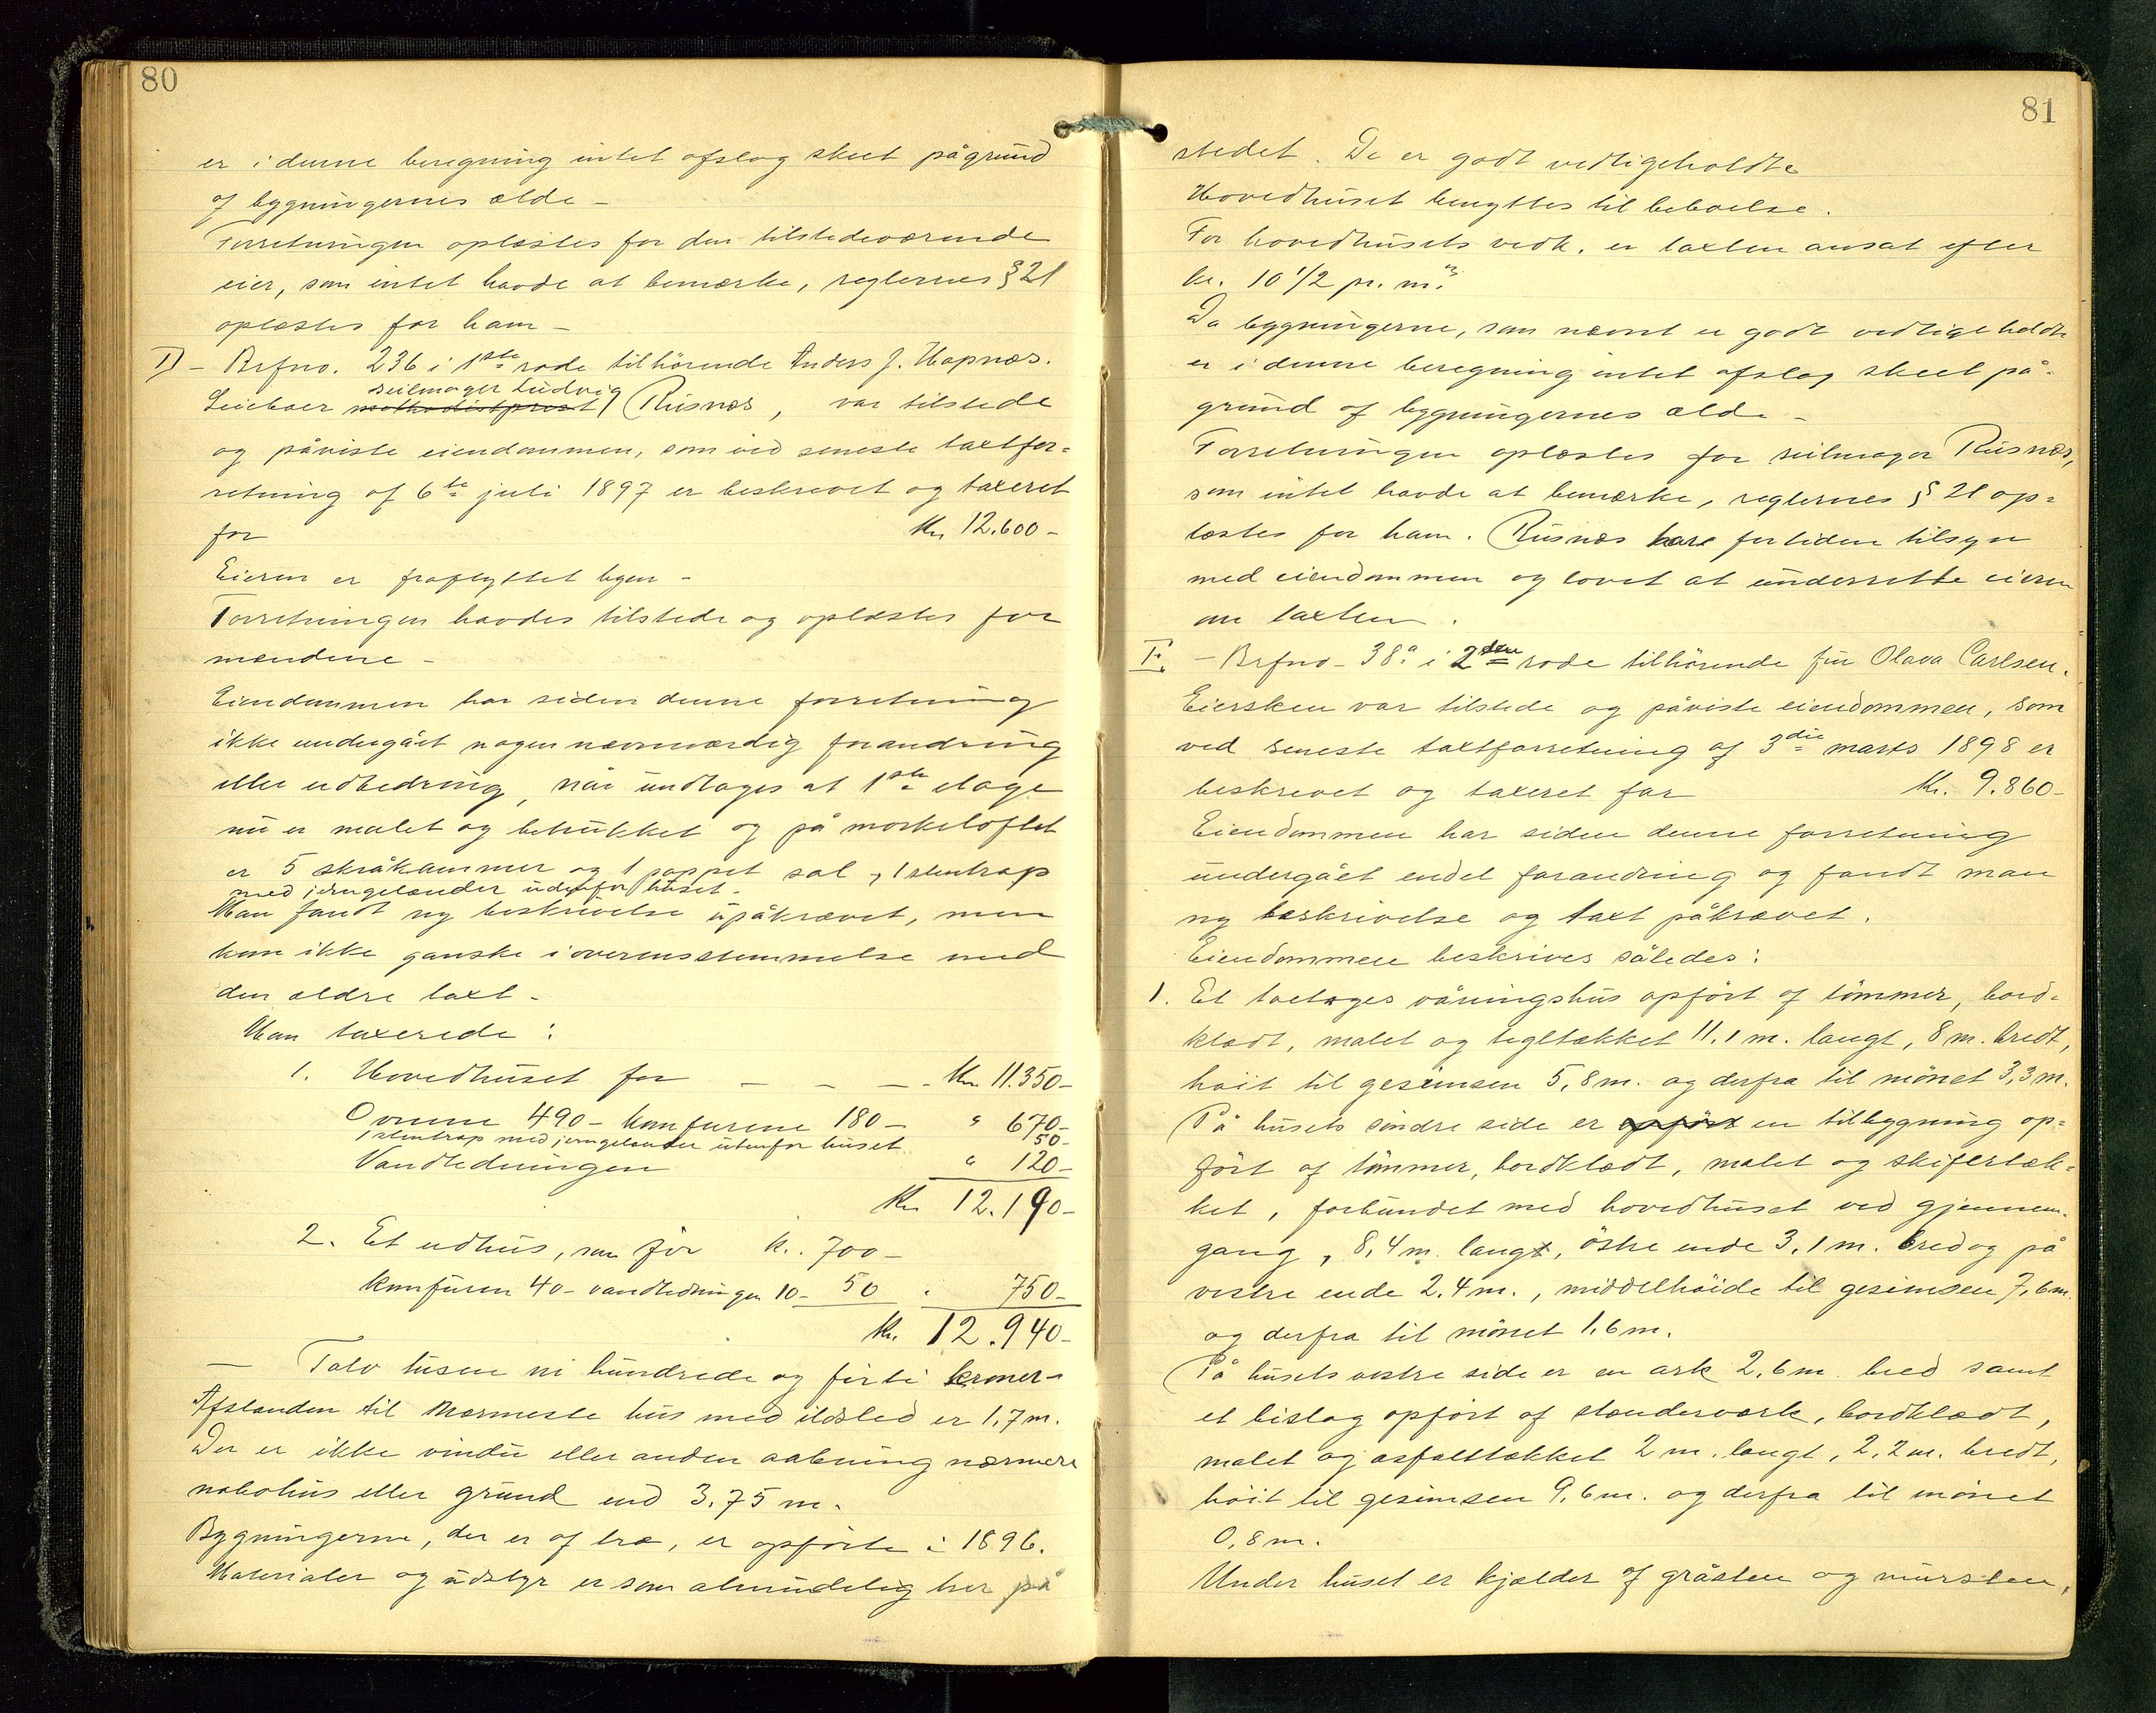 80
er i denne beregning intet afslag skeet på grund
af bygningernes ælde -
Forretningen oplæstes for den tilstedeværende
eier, som intet havde at bemærke, reglernes § 21
oplæstes for ham -
II - Brfno. 236 i 1ste rode tilhörende Anders J. Hopnæs.
seilmager Ludvig
Leieboer methodistprest Risnæs, var tilstede
og påviste eiendommen, som ved seneste taxtfor=
retning af 6te juli 1897 er beskrevet og taxeret
for Kr. 12.600-
Eieren er fraflyttet byen -
Forretningen havdes tilstede og oplæstes for
mændene -
Eiendommen har siden denne forretning
ikke undergået nogen nævneværdig forandring
eller udbedring, når undtages at 1ste etage
nu er malet og betrukket og på mørkeloftet
er 5 skråkammer og 1 pappet sal, 1 stentrap
med jerngelænder udenfor huset.
Man fandt ny beskrivelse upåkrævet, men
kom ikke ganske i overensstemmelse med
den ældre taxt -
Man taxerede :
1. Hovedhuset for - - - - Kr. 11.350-
Ovnene 490- komfurene 180 - " 670-
1 stentrap med jerngelænder utenfor huset 50-
Vandledningen " 120-
Kr. 12.190-
2. Et udhus, som för k. 700-
komfuren 40- vandledningen 10- 50 " 750-
Kr. 12.940-
- Tolv tusen ni hundrede og firti kroner -
Afstanden til nærmeste hus med ildsted er 1,7 m.
Der er ikke vindu eller anden aabning nærmere
nabohus eller grund end 3.75 m.
Bygningerne, der er af træ, er opförte i 1896.
Materialer og udstyr er som almindelig her på
81
stedet. De er godt vedligeholdte
Hovedhuset benyttes til beboelse.
For hovedhusets vedk. er taxten ansat efter
kr. 10 1/2 pr. m3.
Da bygningerne, som nævnt er godt vedligeholdte
er i denne beregning intet afslag skeet på=
grund af bygningernes ælde -
Forretningen oplæstes for seilmager Risnæs,
som intet havde at bemærke, reglernes § 21 op=
læstes for ham. Risnæs har for tiden tilsyn
med eiendommen og lovet at underrette eieren
om taxten.
I. - Brfno - 38a i 2den rode tilhörende fru Olava Carlsen.
Eiersken var tilstede og påviste eiendommen, som
ved seneste taxtforretning af 3die marts 1898 er
beskrevet og taxeret for Kr. 9.860-
Eiendommen har siden denne forretning
undergået endel forandring og fandt man
ny beskrivelse og taxt påkrævet.
Eiendommen beskrives således :
1. Et toetages våningshus opfört af tömmer, bord=
klædt, malet og tegltækket 11,1 m. langt, 8 m. bredt,
höit til gesimsen 5,8 m. og derfra til mönet 3,3 m.
På husets söndre side er opfört en tilbygning op=
fört af tömmer, bordklædt, malet og skifertæk=
ket, forbundet med hovedhuset ved gjennem=
gang, 8,4 m. langt, östre ende 3,1 m. bred og på
vestre ende 2.4 m., middelhöide til gesimsen 7,6 m.
og derfra til mönet 1.6 m.
På husets vestre side er en ark 2,6 m. bred samt
et bislag opfört af stænderværk, bordklædt,
malet og asfalttækket 2 m. langt, 2,2 m. bredt,
höit til gesimsen 9,6 m. og derfra til mönet
0,8 m.
Under huset er kjælder af gråsten og mursten,